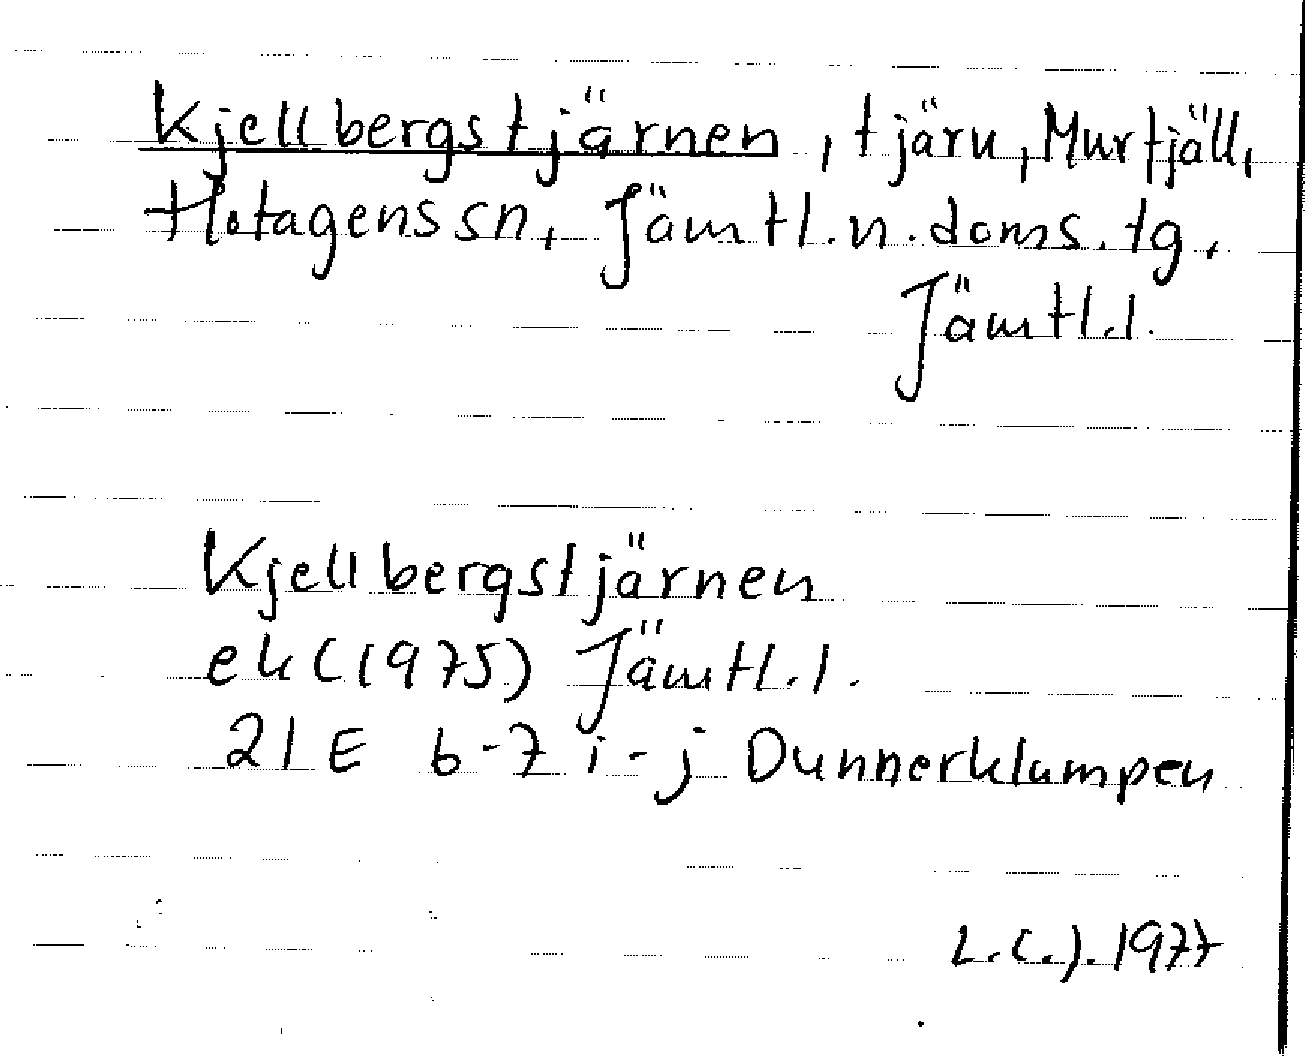 Kjellbergstjärnen, tjärn, Murfjäll,
Hotagens sn, Jämtl. n. doms. tg,
Jämtl. l.
Kjellbergstjärnen
ek (1975) Jämtl. l.
21E 6-7 i-j Dunnerklumpen
L.C.J. 1977